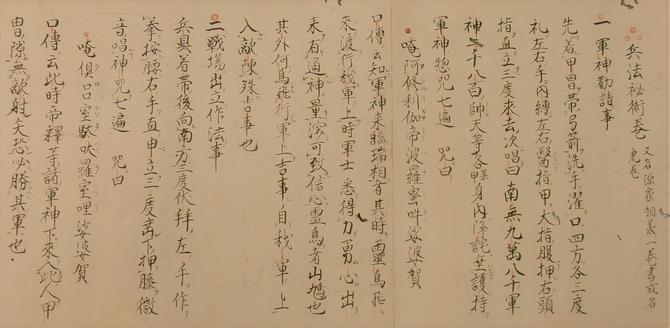 兵法秘術巻 又名源家相義一巻書或名虎巻
一軍神勧請事
先着甲冑帯弓箭洗手濯口四方各三度
礼左右手内縛左右醫指甲大指腹押右頭
指直立三度来去次唱曰南無九萬八千軍
神三十八白帥天等各某身内降詫垂護持
軍神惣呪七遍 呪曰
唵阿修利伽帝波羅蜜吽娑婆賀
口傳云知軍神来臨瑞相者其時靈鳥飛
来渡行我軍上時軍士悉得力勇心出
未有通神量深可致信心靈鳥者山鳩也
其外何鳥飛行軍上吉事自我軍上
入敵陳殊吉事也
二戦場出立作法事
兵具着帯後向南方三度伏拜左手作
拳按腰右手直申立三度再下押膝微
音唱神呪七遍 呪曰
唵俱口室駄吠羅室哩娑婆賀
口傳云此時帝釋等諸軍神下来入此人甲
冑隙無敵射矢恐必勝其軍也